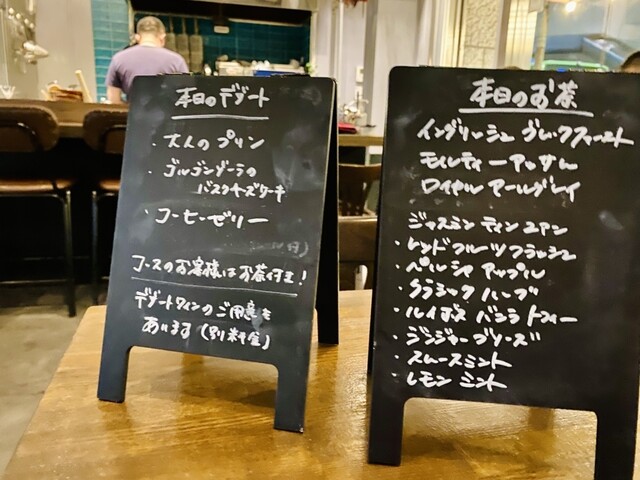 本日のデザート
・大人のプリン
・ゴルゴンゾーラの
バスクチーズケーキ
・コーヒーゼリー
コースのお客様はお茶付き!
デザートワインのご用意も
あります(別料金)
本日のお茶
イングリッシュ ブレックファースト
モルティーアッサム
ロイヤル アールグレイ
ジャスミン ティン ユアン
・レッドフルーツフラッシュ
・ペルシャ アップル
・クラシック ハーブ
・ルイボス バニラ トフィー
・ジンジャーブリーズ
・スムースミント
・レモン ミント